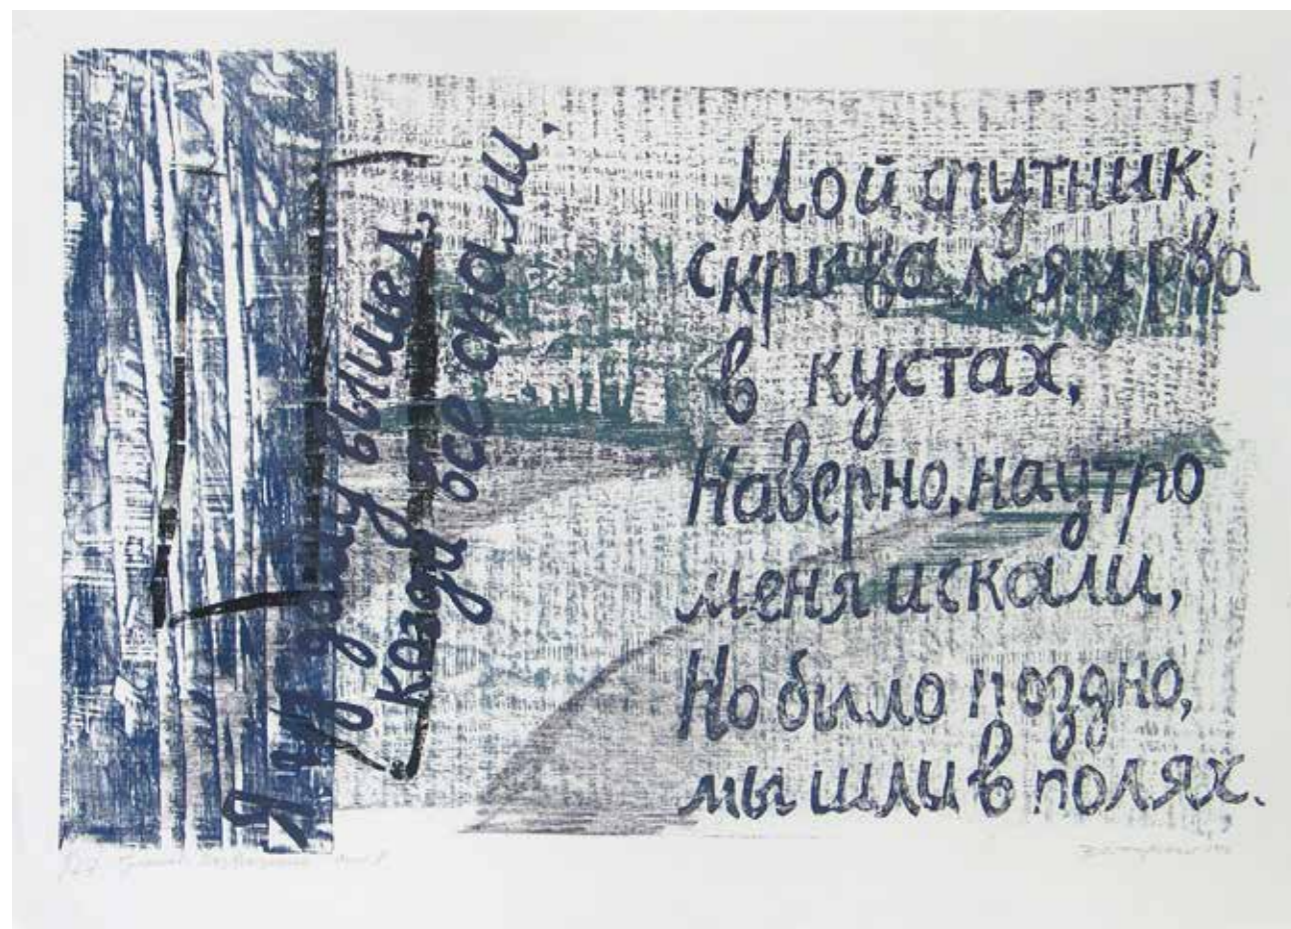 Я из дому вышел,
когда все спали,
Мой спутник
скрывался у рва
в кустах,
Наверно, наутро
меня искали,
Но было поздно,
мы шли в полях.